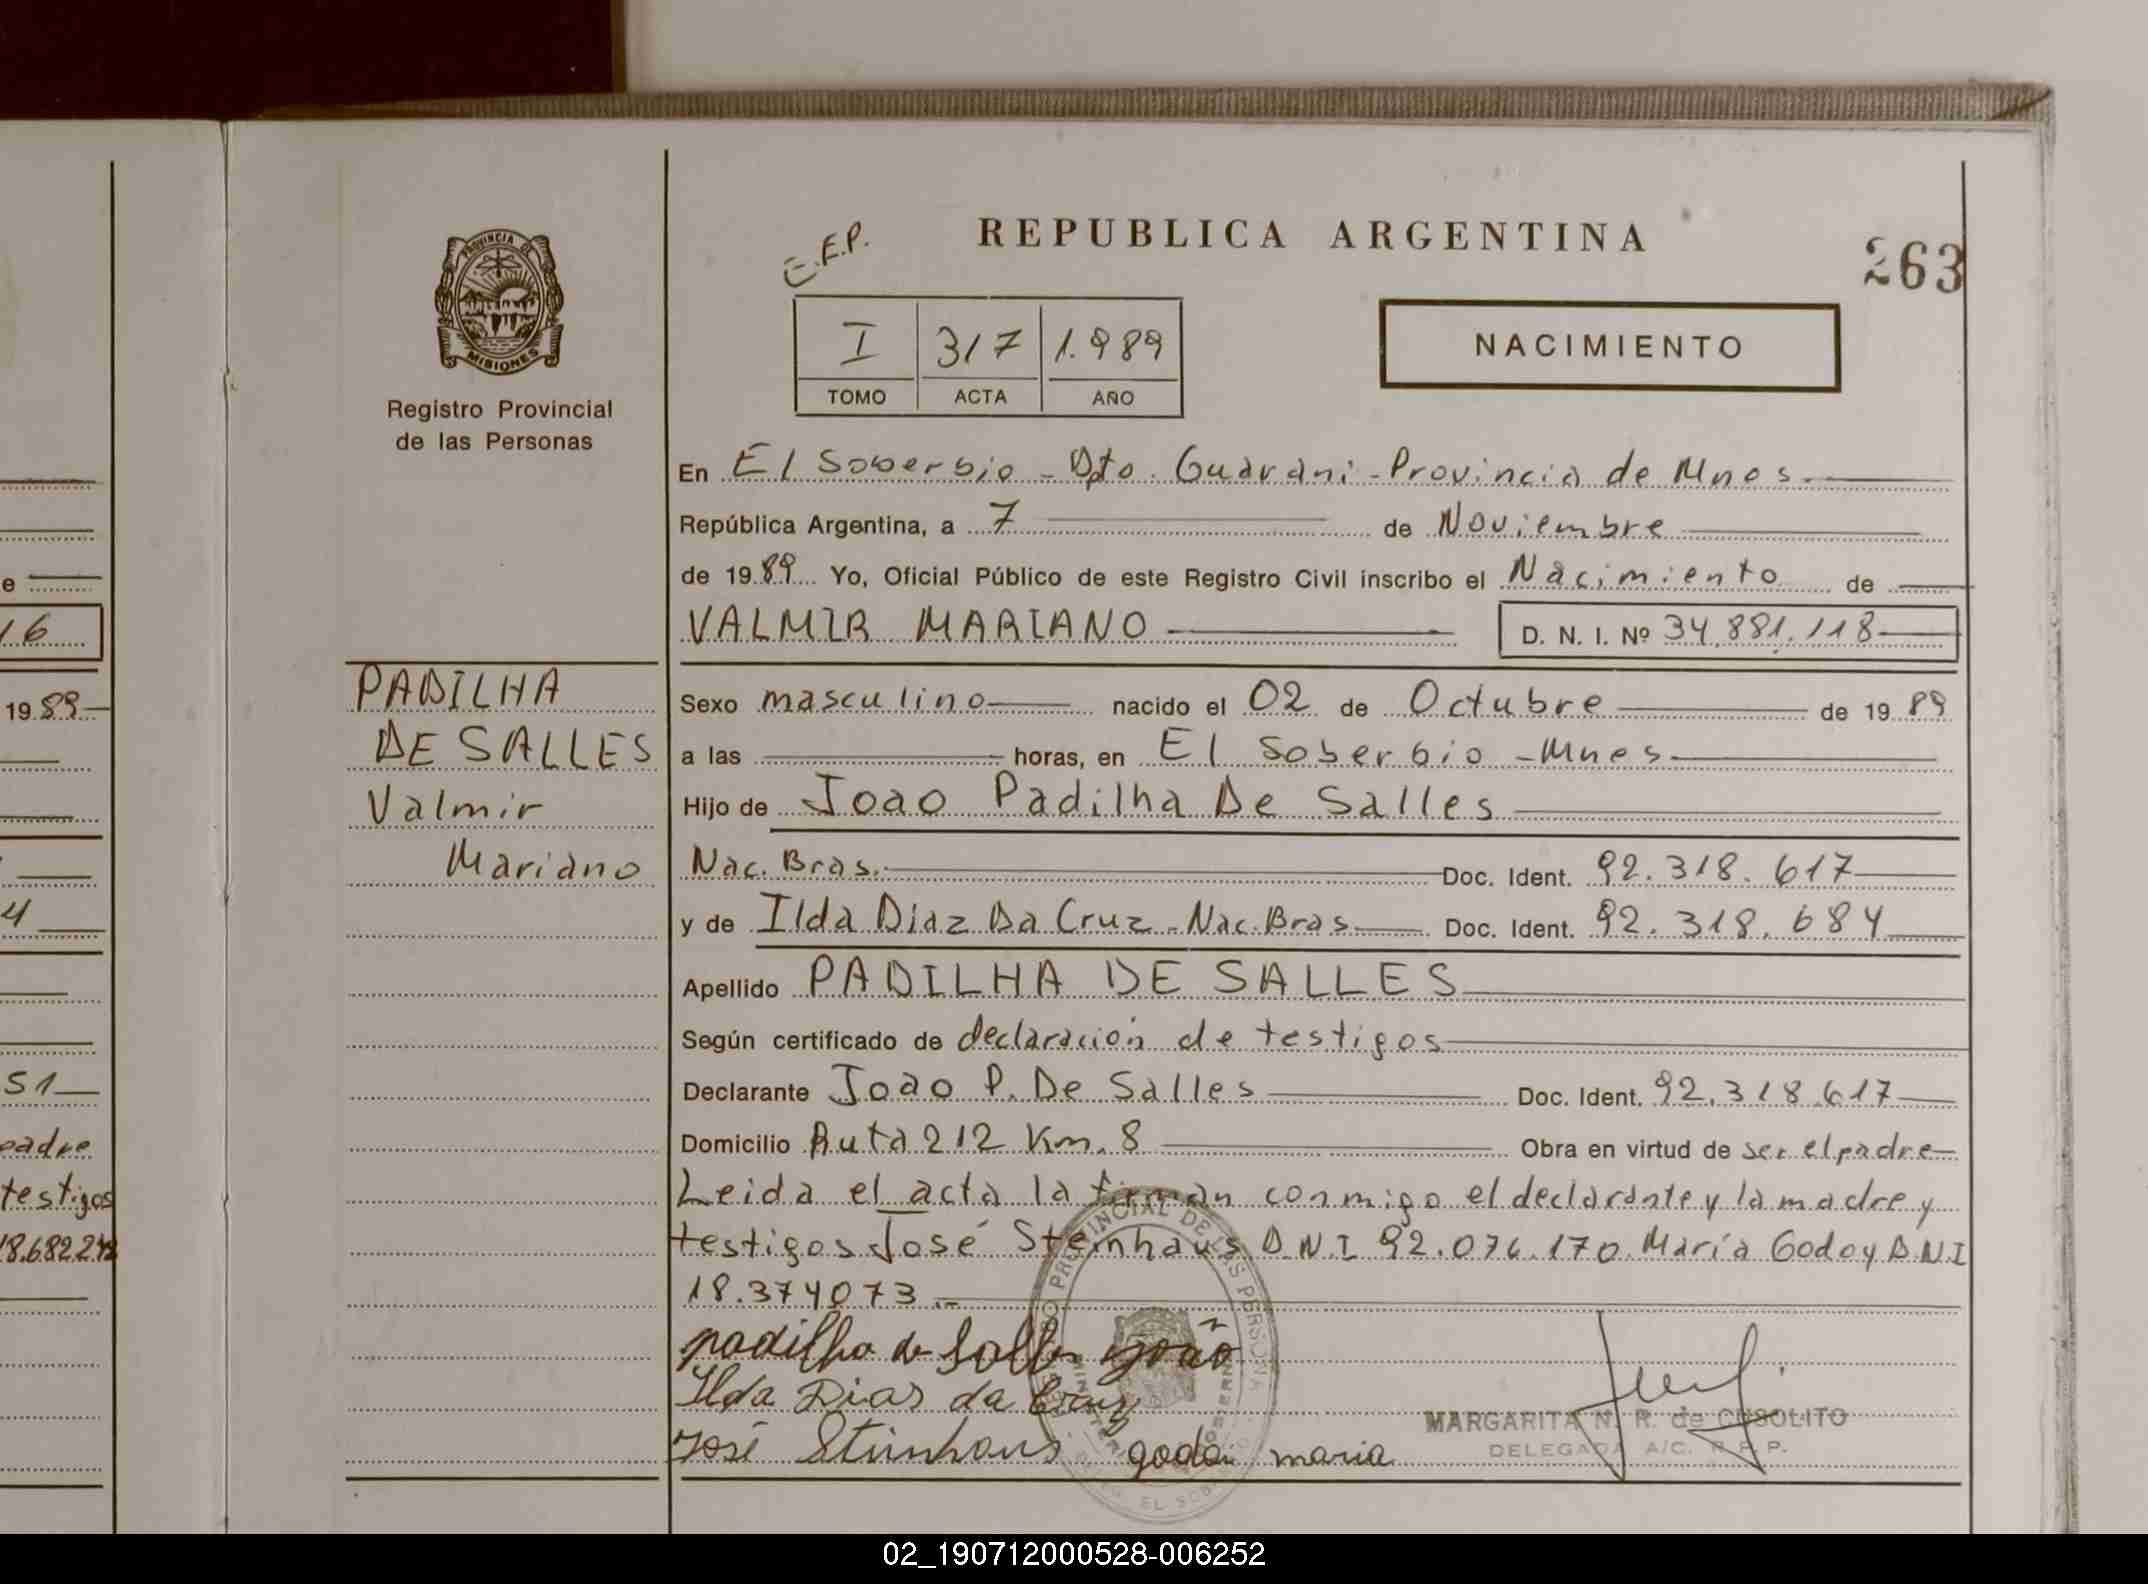 e
16
1989
4
51
padre
testigos
18.682.242
PROVINCIA DE
MISIONES
Registro Provincial
de las Personas
PADILHA
DE SALLES
Valmir
Mariano
E.F.P.
REPUBLICA ARGENTINA
263
I 317 1.989
TOMO ACTA AÑO
NACIMIENTO
En El Soberbio - Dpto. Guarani - Provincia de Mnes
República Argentina, a 7 de Noviembre
de 1989 Yo, Oficial Público de este Registro Civil inscribo el Nacimiento de
VALMIR MARIANO D. N. I. Nº 34.881.118
Sexo masculino nacido el 02 de Octubre de 1989
a las horas, en El Soberbio - Mnes
Hijo de Joao Padilha De Salles
Nac. Bras. Doc. Ident. 92.318.617
y de Ilda Diaz Da Cruz - Nac. Bras Doc. Ident. 92.318.684
Apellido PADILHA DE SALLES
Según certificado de declaración de testigos
Declarante Joao P. De Salles Doc. Ident. 92.318.617
Domicilio Ruta 212 Km. 8 Obra en virtud de ser el padre
Leida el acta la firman conmigo el declarante y la madre y
testigos José Steinhaus D.N.I 92.076.170 María Godoy D.N.I
18.374073.-
padilha de Salles joão
Ilda Dias da Cruz
José Steinhaus godoi maria
MARGARITA N. R. de CUSOLITO
DELEGADA A/C. R.P.P.
02_190712000528-006252